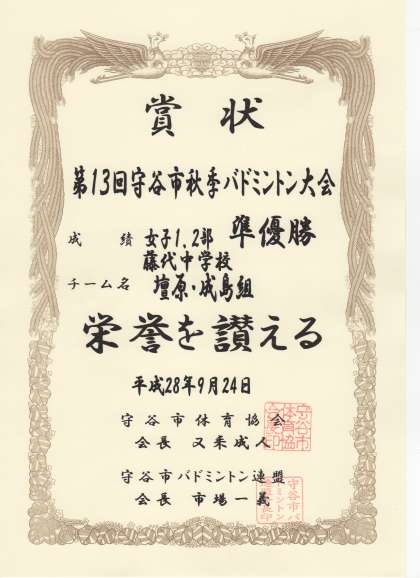 賞状
第13回守谷市秋季バドミントン大会
成績 女子1.2部 準優勝
藤代中学校
チーム名 壇原・成島組
栄誉を讃える
平成28年9月24日
守谷市体育協会
会長 又耒成人
守谷市バドミントン連盟
会長 市場一義